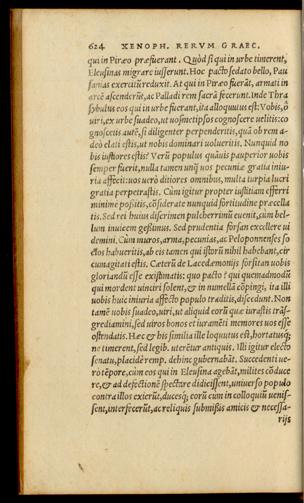 624 XENOPH. RERVM GRAEC.
qui in Piræo præfuerant. Quòd si qui in urbe timerent,
Eleusinas migrare iusserunt. Hoc pacto sedato bello, Pau
sanias exercitũ reduxit. At qui in Piræo fuerãt, armati in
arcẽ ascenderũt, ac Palladi rem sacrã fecerant. Inde Thra
sybulus eos qui in urbe fuerant, ita alloquutus est: Vobis, ô
uiri, ex urbe suadeo, ut uosmetipsos cognoscere uelitis: co
gnoscetis autẽ, si diligenter perpenderitis, quâ ob rem a-
deò elati estis, ut nobis dominari uolueritis. Nunquid no
bis iustiores estis? Verũ populus quãuis pauperior uobis
semper fuerit, nulla tamen unq̃ uos pecuniæ gratia iniu-
ria affecit: uos uerò ditiores omnibus, multa turpia lucri
gratia perpetrastis. Cùm igitur propter iustitiam efferri
minime possitis, cõsiderate nunquid fortitudine præcella
tis. Sed rei huius discrimen pulcherrimũ euenit, cùm bel-
lum inuicem gessimus. Sed prudentia forsan excellere ui
demini. Cùm muros, arma, pecunias, ac Peloponnenses so
cios habueritis, ab eis tamen qui istorũ nihil habebant, cir
cunagitati estis. Ceterũ de Lacedæmonijs forsitan uobis
gloriandũ esse existimatis: quo pacto? qui quemadmodũ
qui mordent uinciri solent, & in numellã cõpingi, ita illi
uobis huic iniuria affecto populo traditis, discedunt. Non
tamẽ uobis suadeo, uiri, ut aliquid eorũ quæ iurastis trãs-
grediamini, sed uiros bonos et iuramẽti memores uos esse
ostẽdatis. Hæc & his similia ille loquutus est, hortatusq;
ne timerent, sed legib. uterẽtur antiquis. Illi igitur electo
senatu, placidè remp. dehinc gubernabãt. Succedenti ue-
rò tẽpore, cùm eos qui in Eleusina agebãt, milites cõduce
re, & ad defectionẽ spectare didicissent, uniuerso populo
contra illos exierũt, ducesq; eorũ cum in colloquiũ uenis-
sent, interfecerũt, ac reliquis submissis amicis & necessa-
rijs